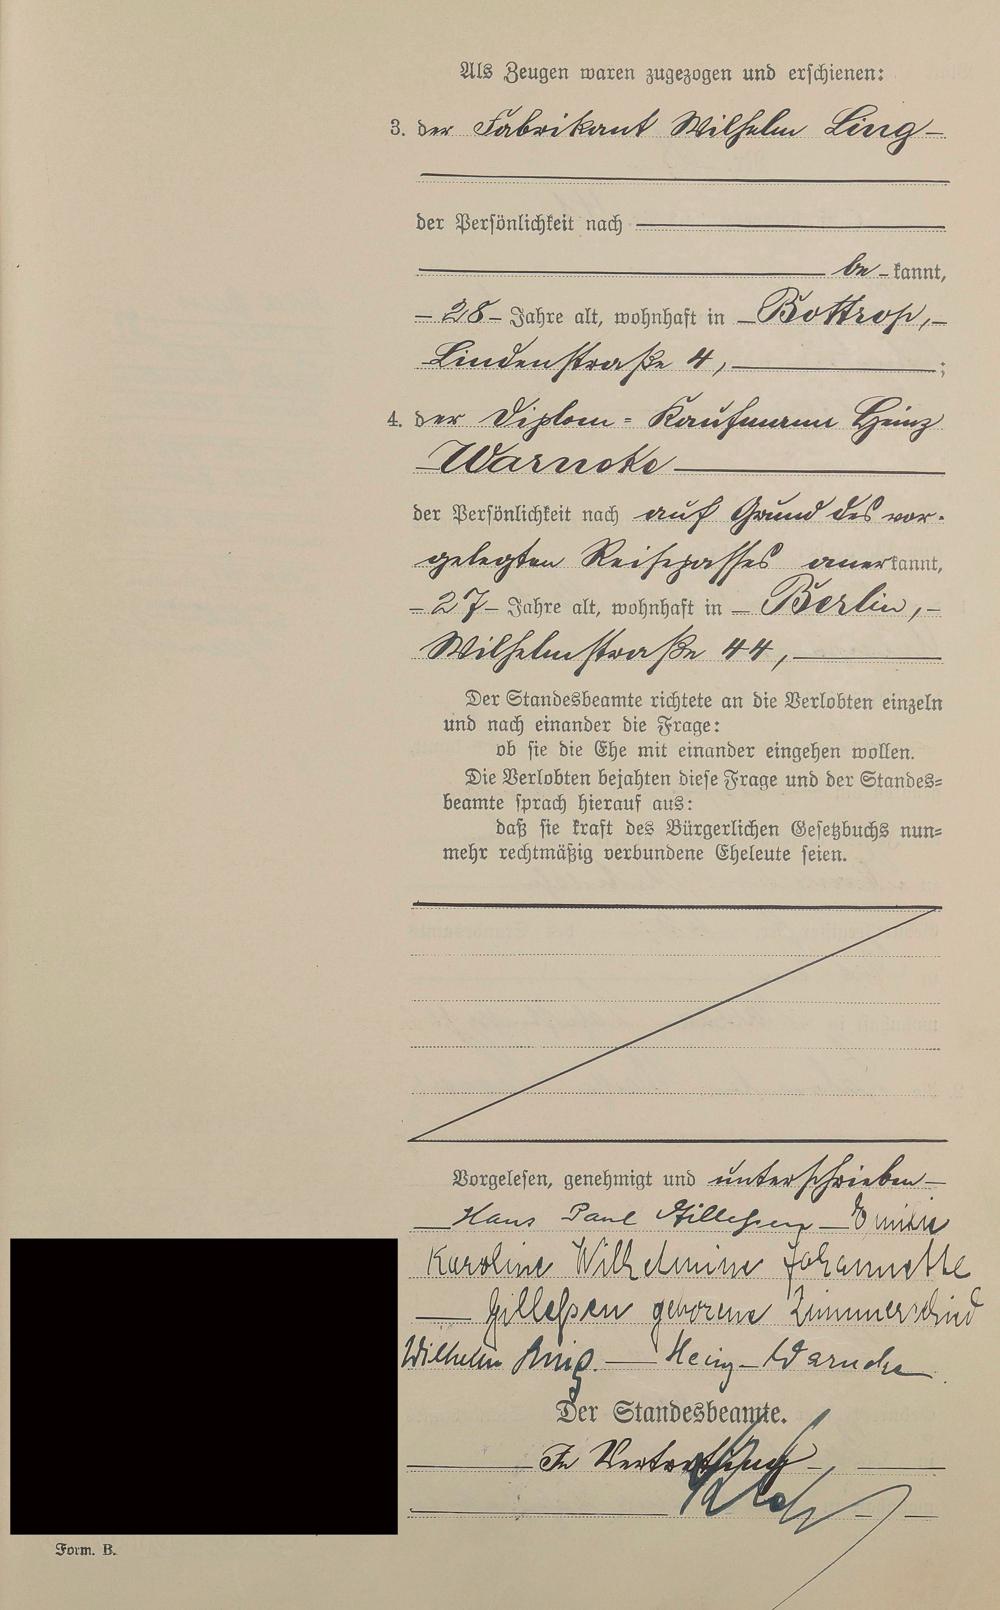 Als Zeugen waren zugezogen und erschienen:
3. der Fabrikant Wilhelm Ling
der Persönlichkeit nach
be kannt,
28 Jahre alt, wohnhaft in Bottrop,
Lindenstraße 4, ;
4. der Diplom=Kaufmann Heinz
Warneke
der Persönlichkeit nach auf Grund des vor-
gelegten Reisepasses anerkannt,
27 Jahre alt, wohnhaft in Berlin,
Wilhelmstraße 44,
Der Standesbeamte richtete an die Verlobten einzeln
und nach einander die Frage:
ob sie die Ehe mit einander eingehen wollen.
Die Verlobten bejahten diese Frage und der Standes=
beamte sprach hierauf aus:
daß sie kraft des Bürgerlichen Gesetzbuchs nun=
mehr rechtmäßig verbundene Eheleute seien.
Vorgelesen, genehmigt und unterschrieben
Hans Paul Gilleßen Emilie
Karoline Wilhelmine Johannette
Gilleßen geborene Zimmerschied
Wilhelm Ling. Heinz Warneke
Der Standesbeamte.
In Vertretung
Form. B.